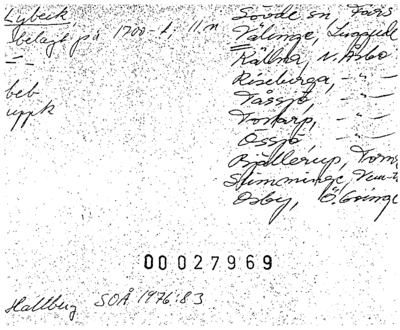 Lybeck
belagt på 1700-t, 11 n
- " -
beb
uppk
Sövde sn, Färs
Välinge, Luggude
Källna, N. Åsbo
Riseberga, - " -
Tåssjö, - " -
Tostarp, - " -
Össjö, - " -
Bjällerup, Torna
Stimminge, Vem
Osby, Ö. Göinge
00027969
Hallberg SOÅ 1976:83